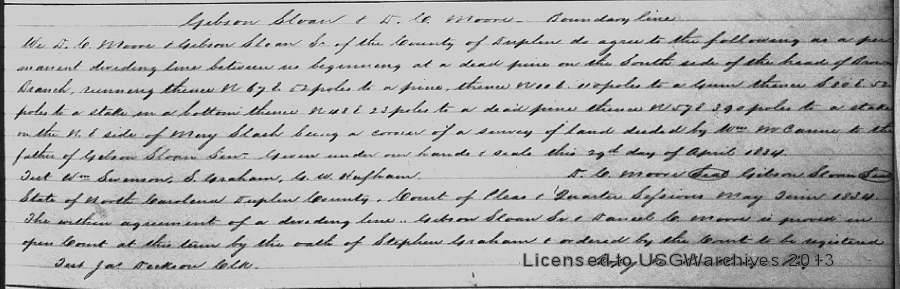 Gibson Sloan & D. C. Moore - Boundary line
We D. C. Moore & Gibson Sloan Sr of the County of Duplin do agree to the following as a per
manent dividing line between us beginning at a dead pine on the South side of the head of
Branch, running thence N 67 E 52 poles to a pine, thence N 10 E. 110 poles to a Gum thence S 80 E 52
poles to a stake in a bottom thence N 48 E 23 poles to a dead pine thence N 57 E 390 poles to a stake
on the N. E side of Mary Slash being a corner of a survey of land deeded by Wm McCanne to the
father of Gibson Sloan Senr. Given under our hands & seals this 29th day of April 1834.
Test Wm Swinson, S. Graham, C. W. D. C. Moore Seal Gibson Sloan Seal
State of North Carolina Duplin County. Court of Pleas & Quarter Sessions May Term 1834
The within agreement of a dividing line Gibson Sloan Sr & Daniel C Moore is proved in
open Court at this term by the oath of Stephen Graham & ordered by the Court to be registered
Test Jas Dickson Clk.
Licensed to USGWarchives 2013